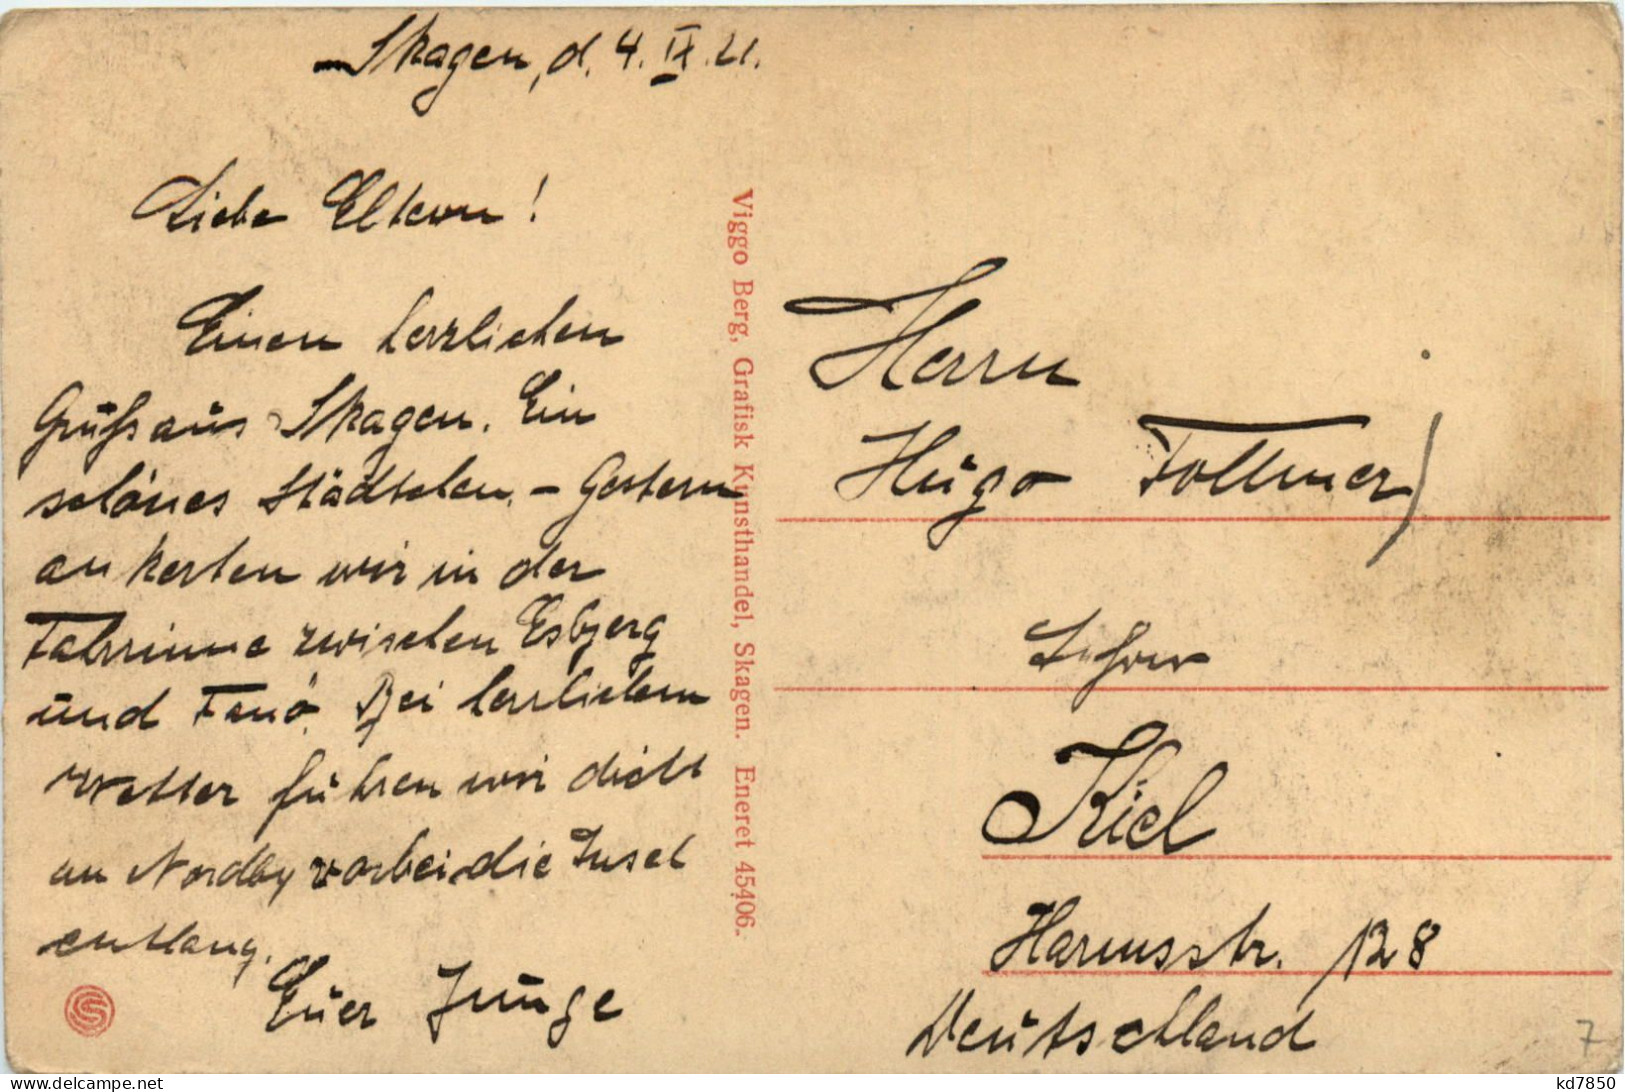 Skagen, d. 4. IX. 21.
Liebe Eltern!
Einen herzlichen
Gruß aus Skagen. Ein
schönes Städtchen. – Gestern
ankerten wir in der
Fahrrinne zwischen Esbjerg
und Fanö. Bei herrlichem
Wetter fuhren wir dicht
an Nordby vorbei, die Insel
entlang.
Euer Junge
Viggo Berg, Grafisk Kunsthandel, Skagen. Eneret 45406.
Herrn
Hugo Follmer
Kiel
Harmsstr. 128
Deutschland
7
kd7850